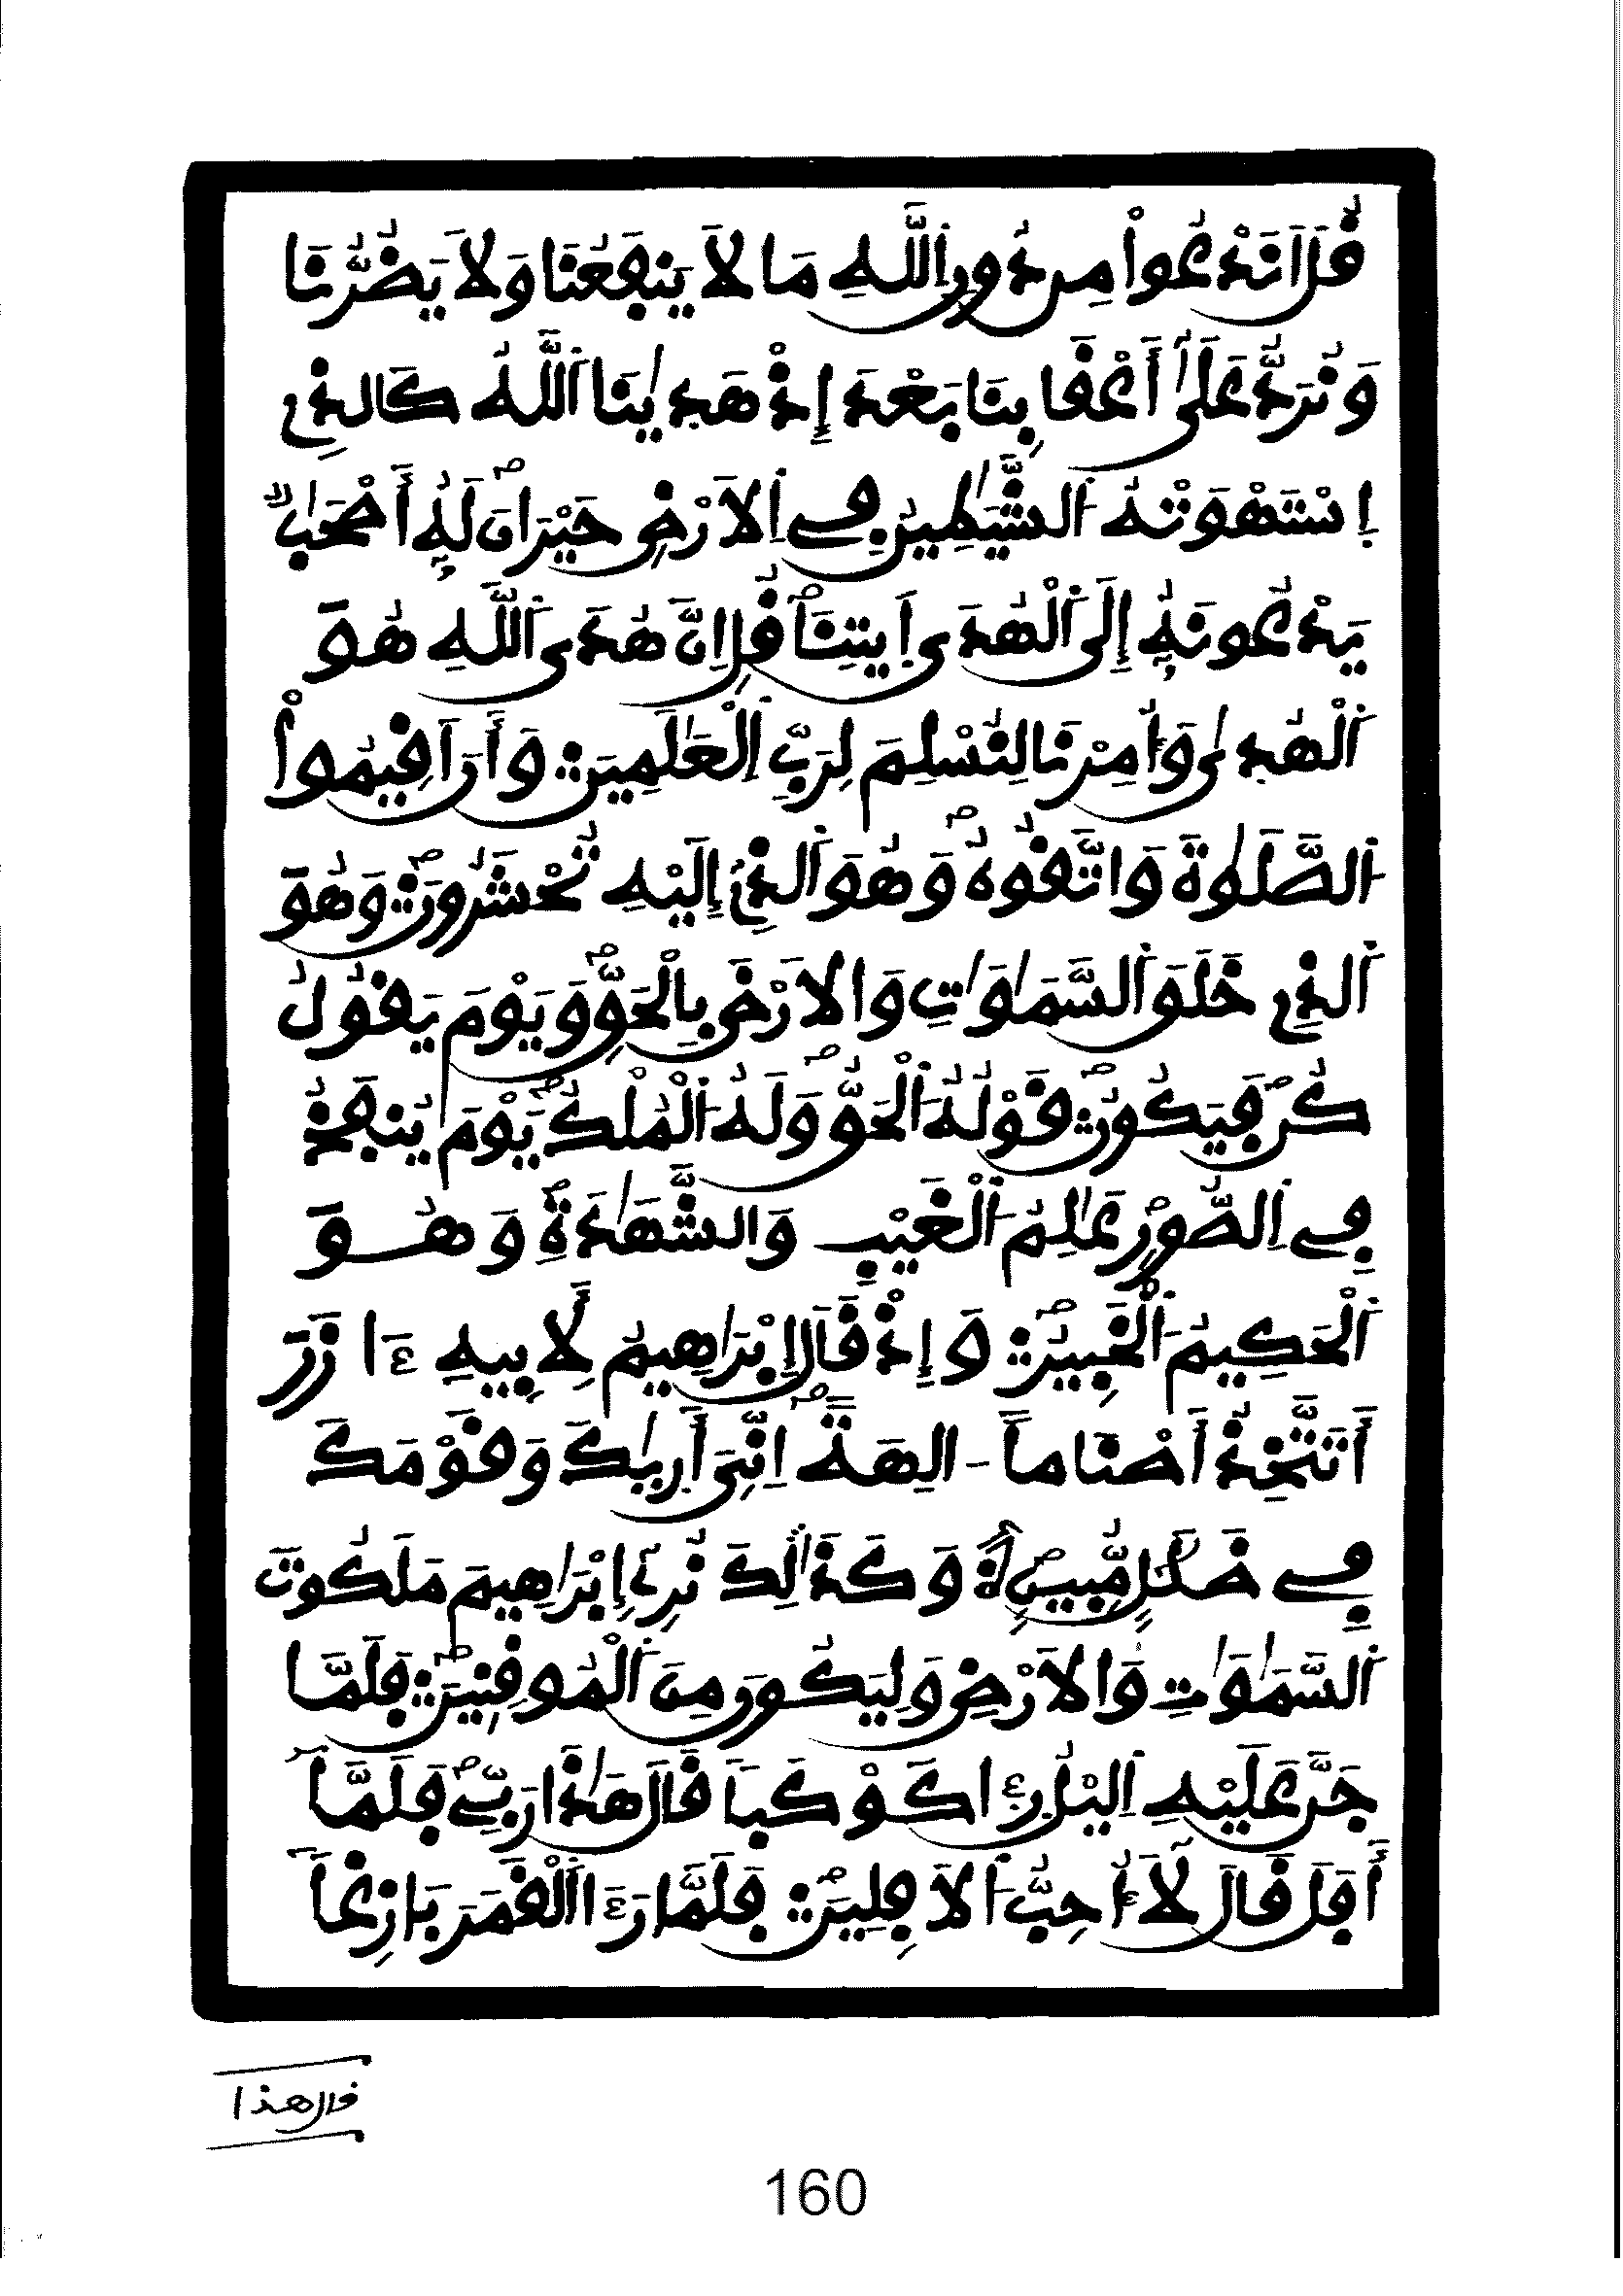 قُلَ اَنَدْعُواْ مِن دُونِ اِ۬للَّهِ مَا لَا يَنفَعُنَا وَلَا يَضُرُّنَا
وَنُرَدُّ عَلَيٰٓ أَعْقَابِنَا بَعْدَ إِذْ هَدٜيٰنَا اَ۬للَّهُ كَالذِے
اِ۪سْتَهْوَتْهُ اُ۬لشَّيَٰطِينُ فِے اِ۬لَارْضِ حَيْرَانَ لَهُۥٓ أَصْحَٰبٞ
يَدْعُونَهُۥٓ إِلَي اَ۬لْهُدَي اَ۪يتِنَا قُلِ اِنَّ هُدَي اَ۬للَّهِ هُوَ
اَ۬لْهُدٜيٰ وَأُمِرْنَا لِنُسْلِمَ لِرَبِّ اِ۬لْعَٰلَمِينَ وَأَنَ اَقِيمُواْ
اُ۬لصَّلَوٰةَ وَاتَّقُوهُ وَهُوَ اَ۬لذِےٓ إِلَيْهِ تُحْشَرُونَ وَهُوَ
اَ۬لذِے خَلَقَ اَ۬لسَّمَٰوَٰتِ وَالَارْضَ بِالْحَقِّ وَيَوْمَ يَقُولُ
كُن فَيَكُونُ قَوْلُهُ اُ۬لْحَقُّ وَلَهُ اُ۬لْمُلْكُ يَوْمَ يُنفَخُ
فِے اِ۬لصُّورِ عَٰلِمُ اُ۬لْغَيْبِ وَالشَّهَٰدَةِ وَهُوَ
اَ۬لْحَكِيمُ اُ۬لْخَبِيرُ وَإِذْ قَالَ إِبْرَٰهِيمُ لِأَبِيهِ ءَازَرَ
أَتَتَّخِذُ أَصْنَاماً اٰلِهَةً اِنِّيَ أَر۪يٰكَ وَقَوْمَكَ
فِے ضَلَٰلٖ مُّبِينٖ وَكَذَٰلِكَ نُرِےٓ إِبْرَٰهِيمَ مَلَكُوتَ
اَ۬لسَّمَٰوَٰتِ وَالَارْضِ وَلِيَكُونَ مِنَ اَ۬لْمُوقِنِينَ فَلَمَّا
جَنَّ عَلَيْهِ اِ۬ليْلُ رَءٜا كَوْكَباً قَالَ هَٰذَا رَبِّے فَلَمَّآ
أَفَلَ قَالَ لَآ أُحِبُّ اُ۬لَافِلِينَ فَلَمَّا رَءَا اَ۬لْقَمَرَ بَازِغاً
قال هذا
160